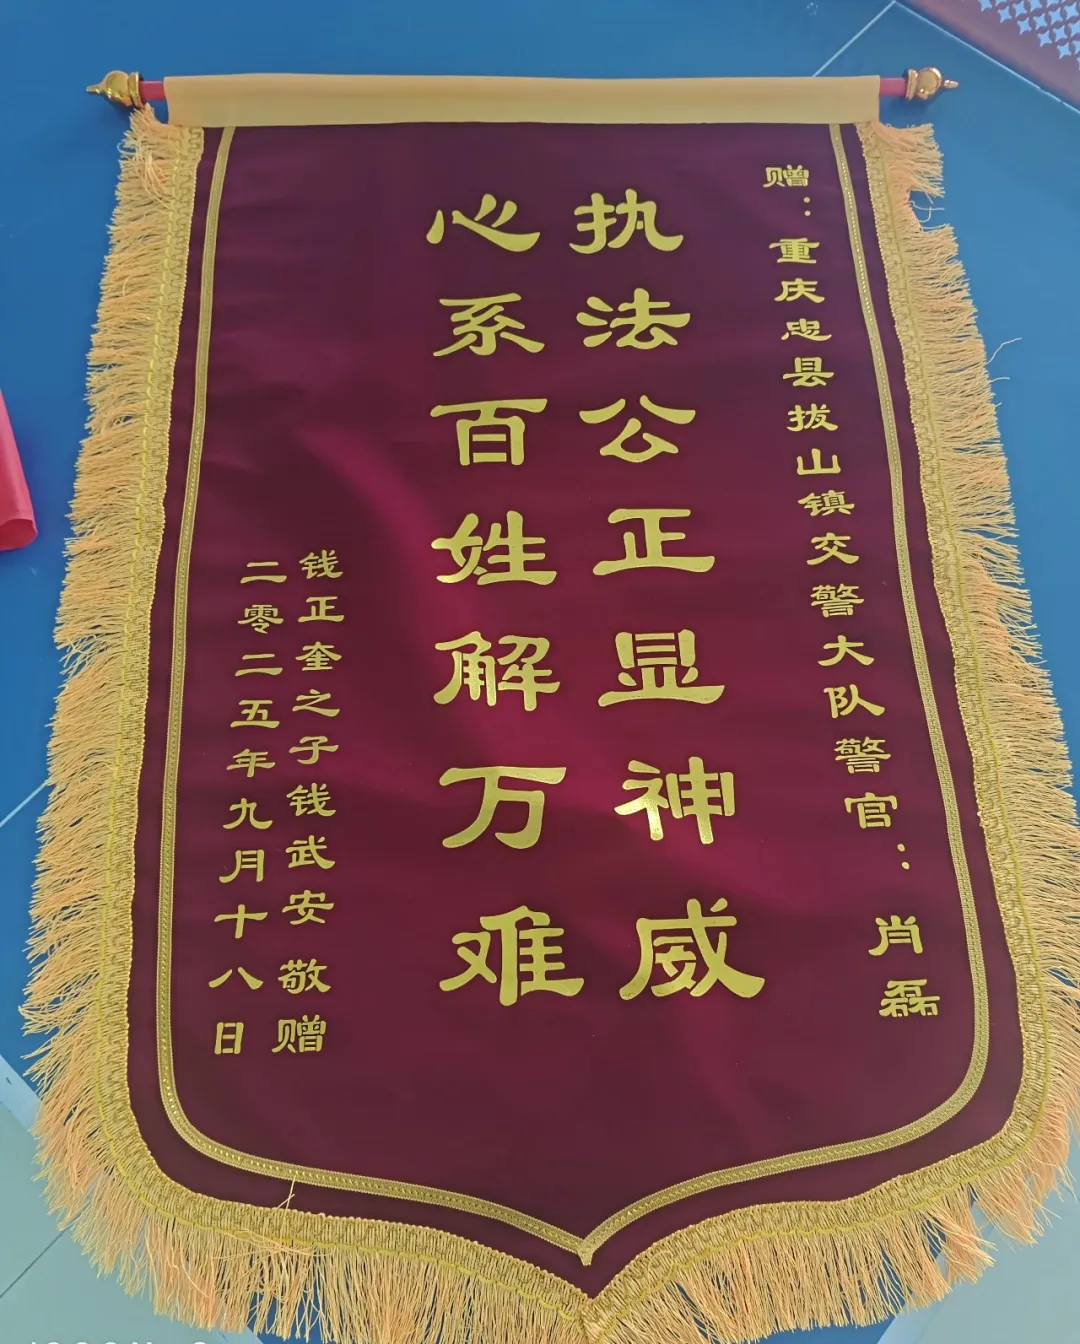 赠：重庆忠县拔山镇交警大队警官：肖磊
执法公正显神威
心系百姓解万难
钱正奎之子钱武安 敬赠
二零二五年九月十八日